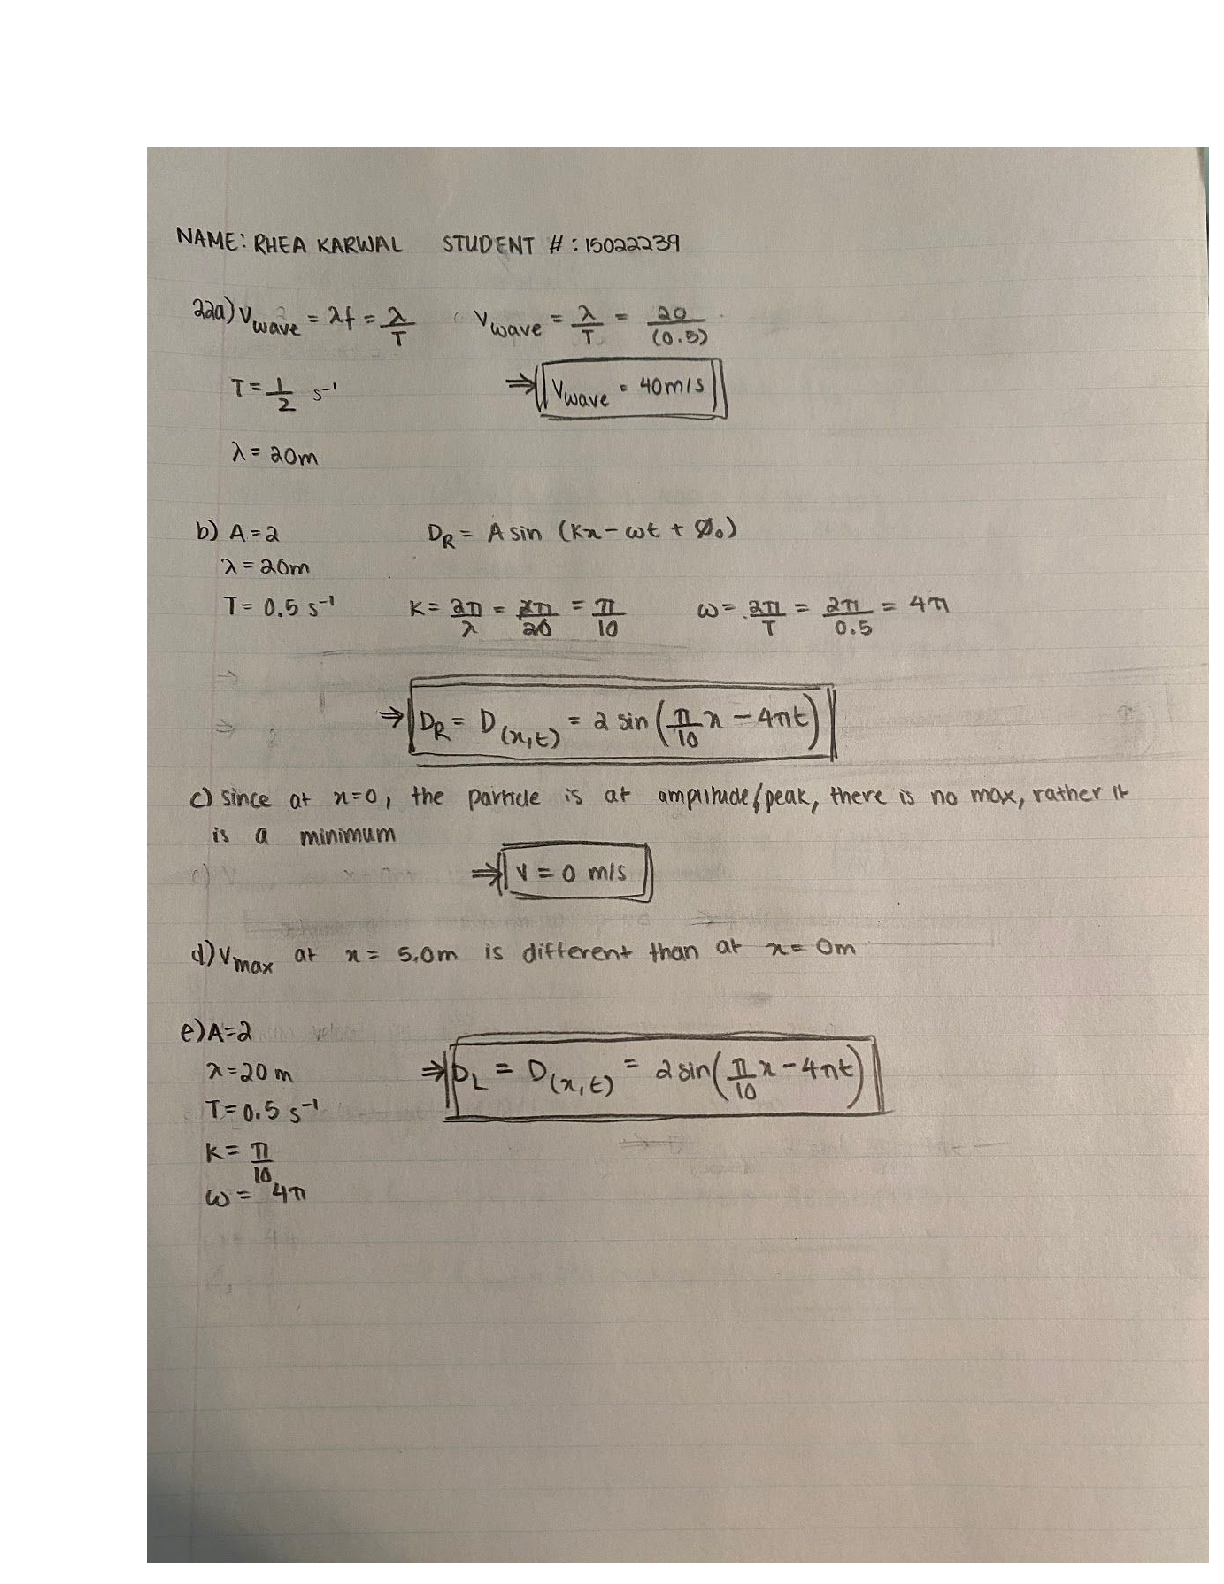 NAME: RHEA KARWAL STUDENT #: 15022239
22a) V_wave = λf = λ/T V_wave = λ/T = 20/(0.5)
T = 1/2 s⁻¹ ⇒ V_wave = 40m/s
λ = 20m
b) A = 2 D_R = A sin (kx - ωt + Ø₀)
λ = 20m
T = 0.5 s⁻¹ K = 2π/λ = 2π/20 = π/10 ω = 2π/T = 2π/0.5 = 4π
⇒ D_R = D(x,t) = 2 sin (π/10 x - 4πt)
c) since at x=0, the particle is at amplitude/peak, there is no max, rather it
is a minimum
⇒ V = 0 m/s
d) V_max at x = 5.0m is different than at x = 0m
e) A=2
λ = 20 m ⇒ D_L = D(x,t) = 2 sin (π/10 x - 4πt)
T = 0.5 s⁻¹
K = π/10
ω = 4π